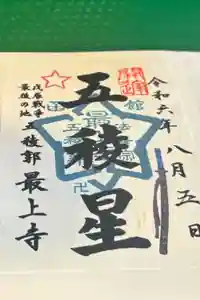 令和六年八月五日
五稜星
函館
最法
戊辰戦争
最後の地
五稜郭 最上寺
卍